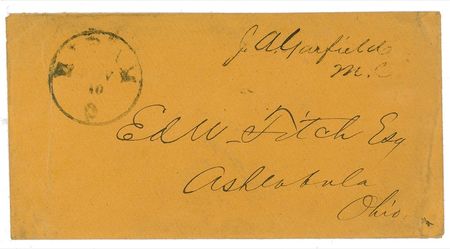 J. A. Garfield
M.C.
Ed W. Fitch Esq
Ashtabula
Ohio.